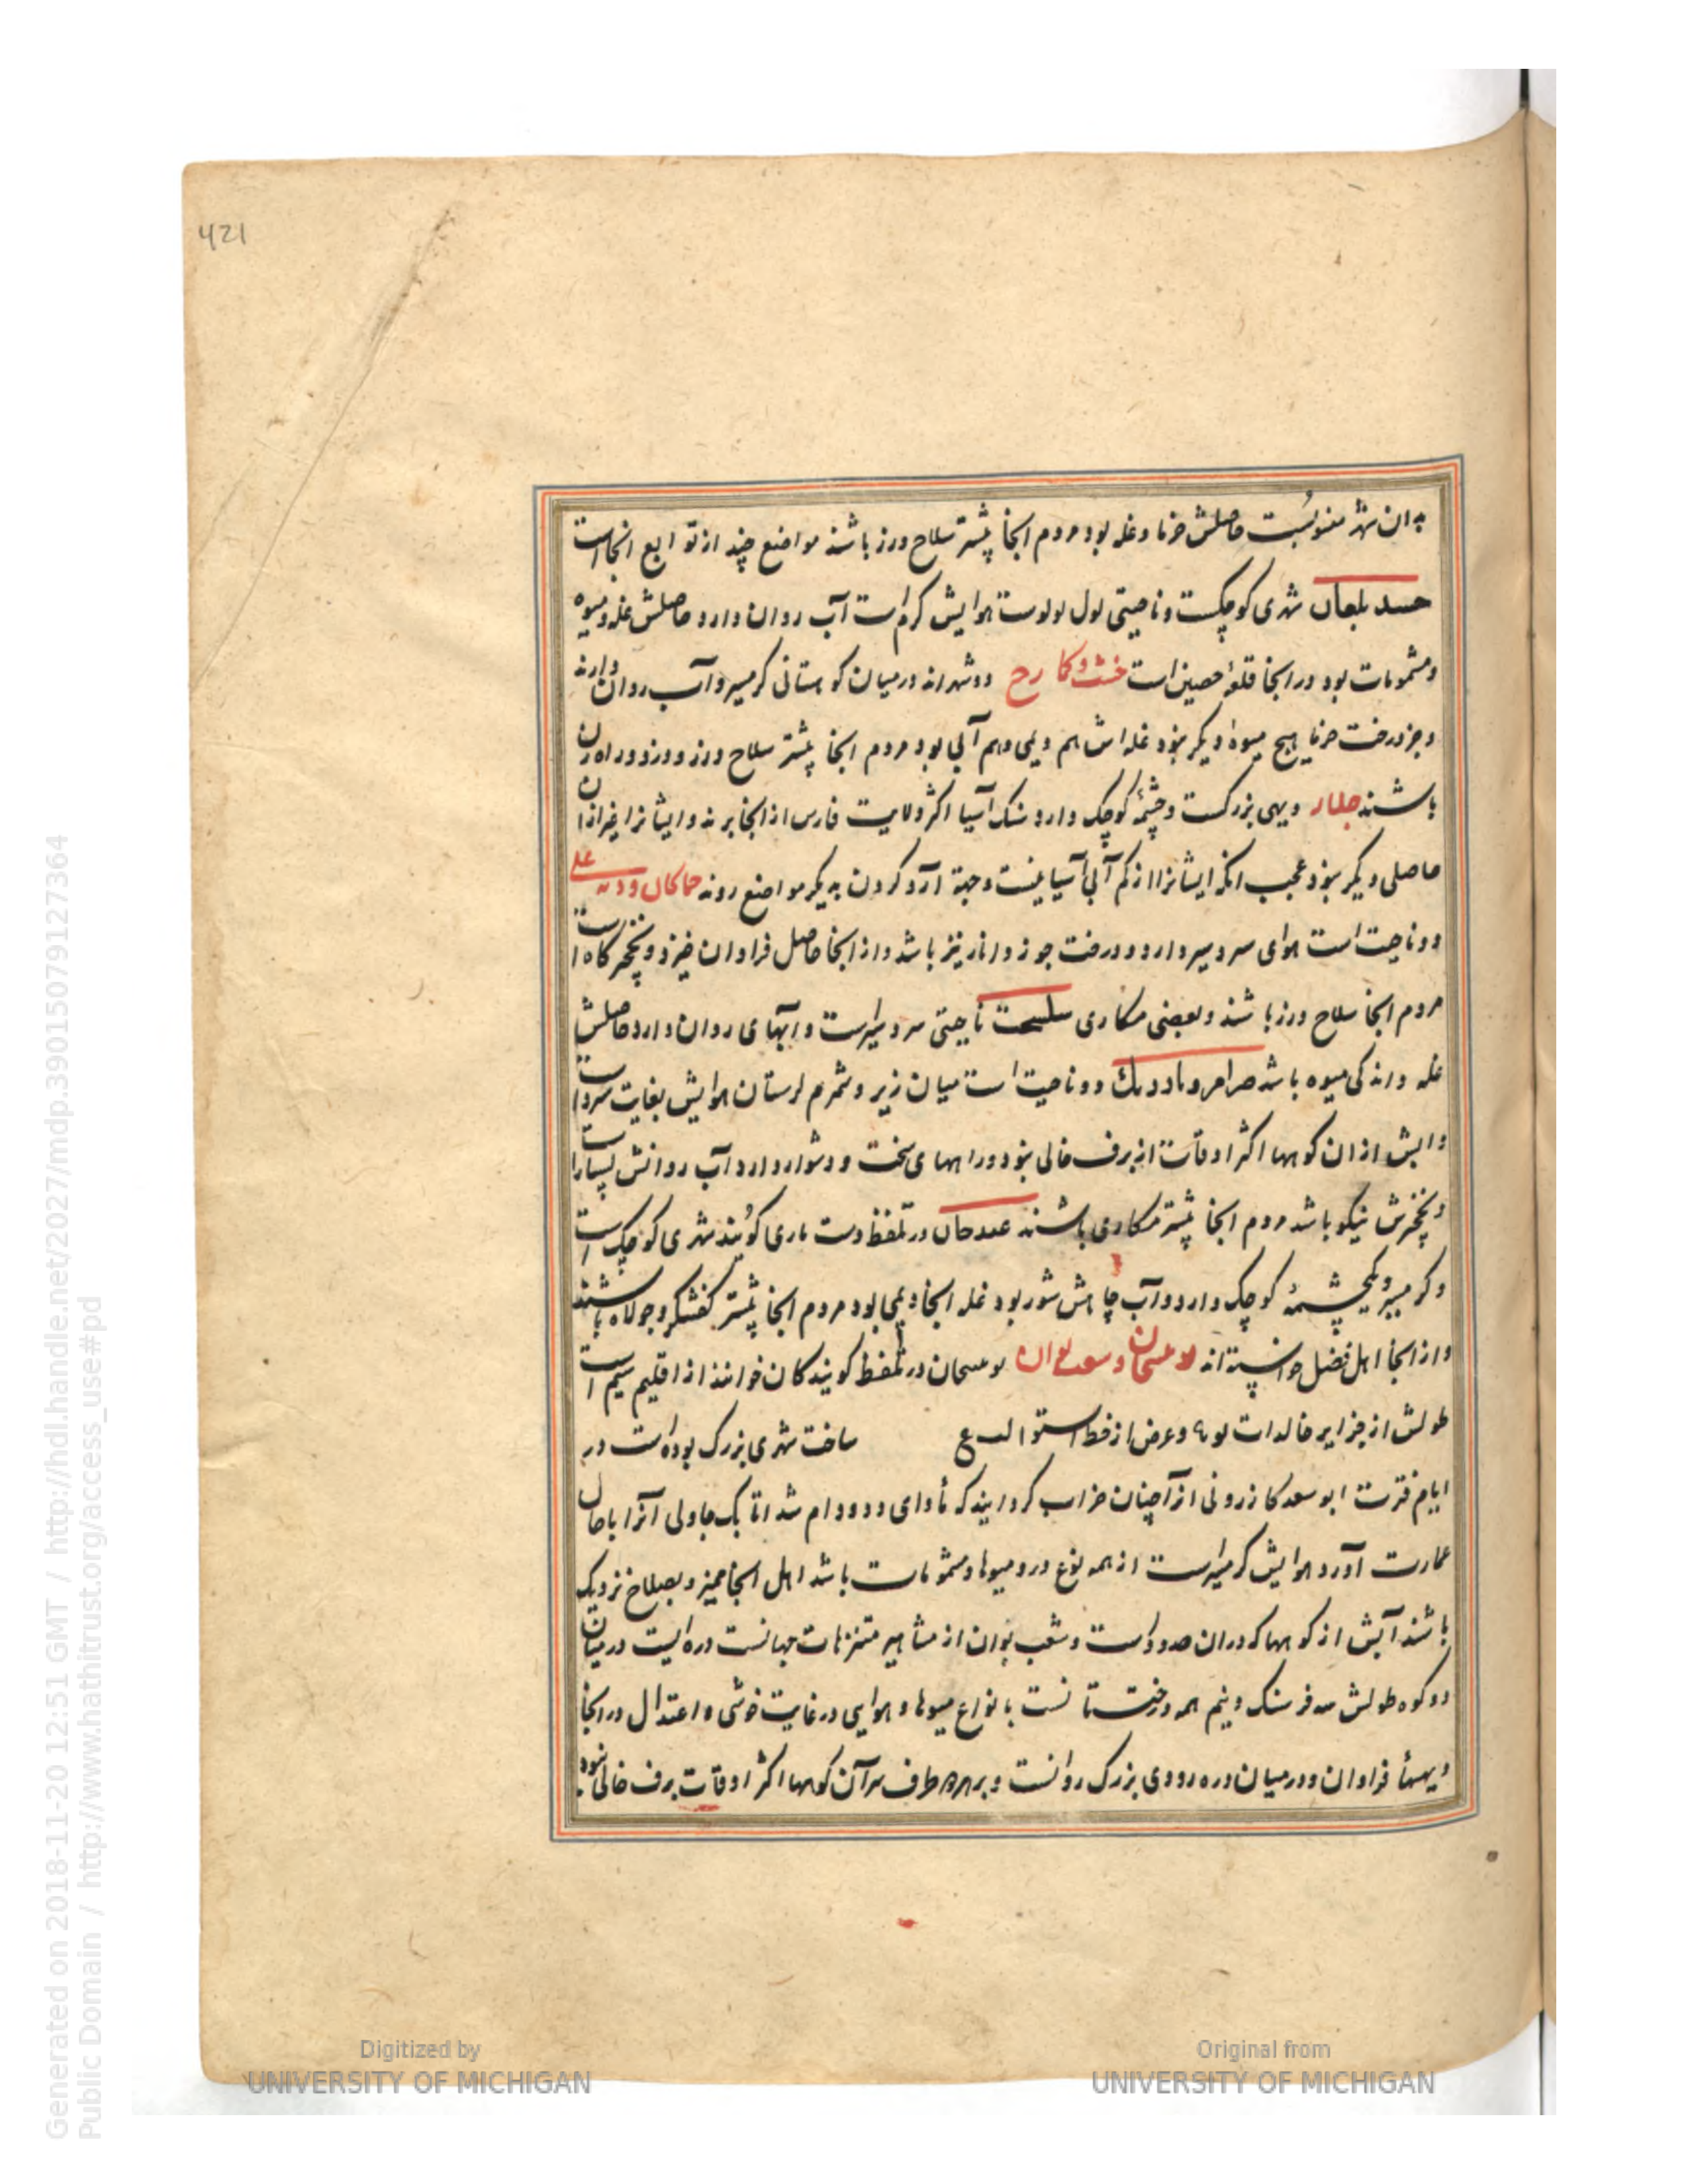 421
بدان شهر منسوبست حاصلش خرما و غله بود مردم آنجا بیشتر سلاح ورز باشند مواضع چند از توابع انجاست
شهری کوچکست و ناحیتی هوایش کرم است آب روان دارد حاصلش غله و میوه
ومشمومات بود در انجا قلعهٔ حصین است خشت و کمارج دو شهراند در میان کوهستانی کرمسیر و آب روان دارند
و جز درخت خرما هیچ میوهٔ دیکر نبود غله اش هم دیمی و هم آبی بود مردم انجا بیشتر سلاح ورز و دزد و راه زن
باشند دیهی بزرکست و چشمهٔ کوچک دارد سنک آسیا اکثر ولایت فارس از انجا برند و ایشانرا غیر از آن
حاصلی دیکر نبود عجب انکه ایشانرا از کم آبی آسیا نیست و جهة آرد کردن بدیکر مواضع روند
دو ناحیت است هوای سردسیر دارد و درخت جوز و انار نیز باشد و از انجا حاصل فراوان خیزد و نخجیرکاه است
مردم انجا سلاح ورز باشند و بعضی مکاری ناحیتی سردسیرست و آبهای روان دارد حاصلش
غله و اندکی میوه باشد دو ناحیت است میان زیر و شمرم لرستان هوایش بغایت سردست
و آبش از ان کوهها اکثر اوقات از برف خالی نبود و راههای سخت و دشوار دارد آب روانش بسیارست
و نخجیرش نیکو باشد مردم انجا بیشتر مکاری باشند در تلفظ دشت باری کویند شهری کوچک است
و کرمسیر و یکچشمهٔ کوچک دارد و آب چاهش شور بود غله انجا دیمی بود مردم انجا بیشتر کفشکر و جولاه باشند
و از انجا اهل فضل خواسته اند در تلفظ کویندکان خوانند از اقلیم سیم است
طولش از جزایر خالدات و عرض از خط استوا ساخت شهری بزرک بوده است در
ایام فترت ابو سعد کازرونی انرا چنان خراب کردانید که مأوای دد و دام شد اتابک چاولی آنرا باحال
عمارت آورد هوایش کرمسیرست از همه نوع درو میوها و مشمومات باشد اهل انجا ممیز و بصلاح نزدیک
باشند آبش از کوهها که دران حدودست و شعب بوان از مشاهیر متنزهات جهانست دره ایست در میان
دو کوه طولش سه فرسنک و نیم همه درختستانست با نواع میوها و هوایی در غایت خوشی و اعتدال در انجا
دیهها فراوان و در میان دره رودی بزرک روانست و بر هر دو طرف سر آن کوهها اکثر اوقات برف خالی نبود
Generated on 2018-11-20 12:51 GMT / http://hdl.handle.net/2027/mdp.39015079127364
Public Domain / http://www.hathitrust.org/access_use#pd
Digitized by
UNIVERSITY OF MICHIGAN
Original from
UNIVERSITY OF MICHIGAN